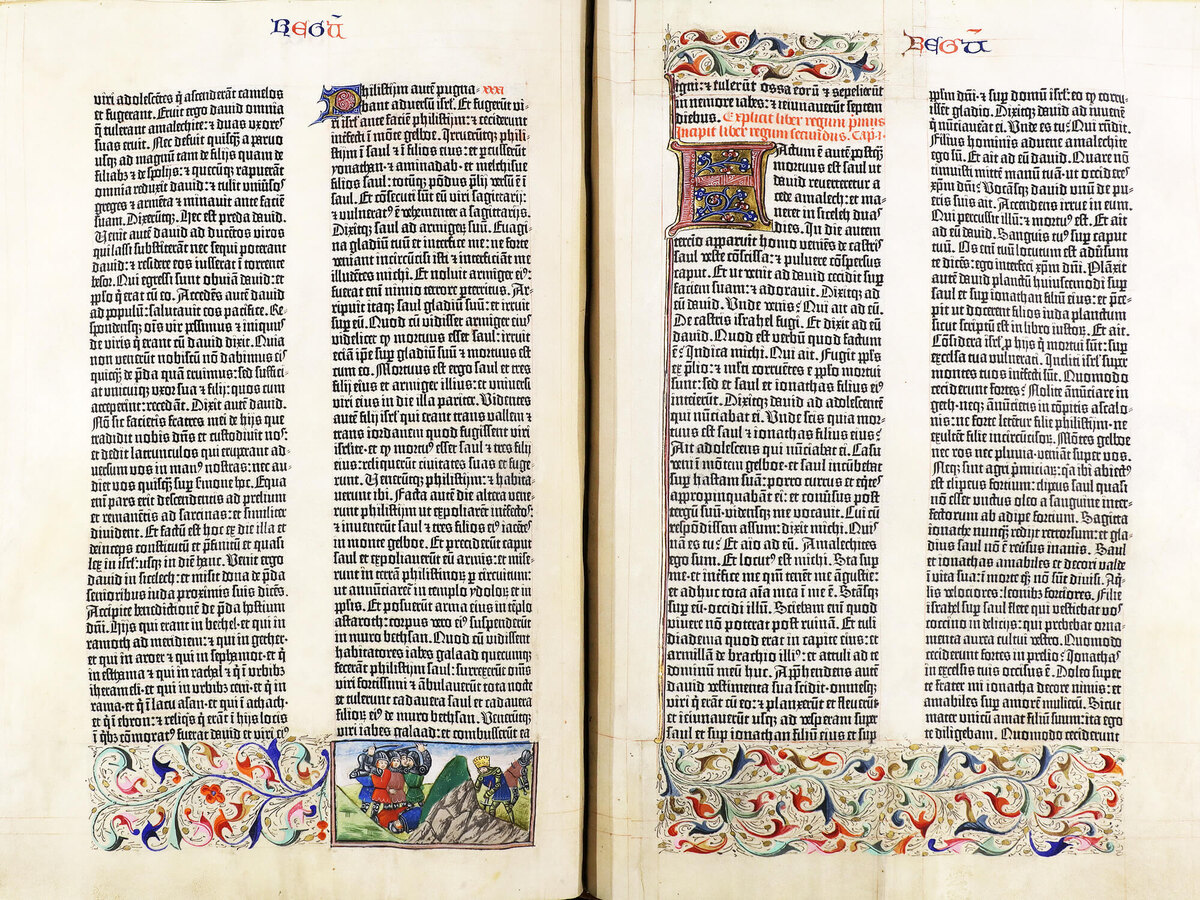 REGŪ
viri adolescētes q̄ ascenderant camelos
et fugerant. Eruit ergo david omnia
q̄ tulerant amalechite: et duas uxores
suas eruit. Nec defuit quicq̄ a parvo
usq̄ ad magnū tam de filijs quam de
filiab⁹ et de spolijs: et quecūq̄ rapuerāt
omnia reduxit david: et tulit univsos
greges et armēta et minavit ante faciē
suam. Dixerūtq̄. Hec est preda david.
Venit autē david ad ducētos viros
qui lassi substiterāt nec sequi poterant
david: et residere eos iusserat ī torrente
besor. Qui egressi sunt obviā david: et
pplo q̄ erat cū eo. Accedēs autē david
ad populū: salutavit eos pacifice. Re-
spondensq̄ oīs vir pessimus et iniquus
de viris q̄ erant cū david dixit. Quia
non venerūt nobiscū nō dabimus eis
quicq̄ de p̄da quā eruimus: sed suffici-
at unicuiq̄ uxor sua et filij: quos cum
acceperint: recedāt. Dixit autē david.
Nō sic facietis fratres mei de hijs que
tradidit nobis dn̄s et custodivit nos:
et dedit latrunculos qui eruperant ad-
versum vos in man⁹ nostras: nec au-
diet vos quisq̄ sup̄ smone hoc. Equa
enī pars erit descendentis ad prelium
et remanētis ad sarcinas: et similiter
divident. Et factū est hoc ex die illa et
deinceps constitutū et p̄finitū et quasi
lex in isrl̄: usq̄ in diē hanc. Venit ergo
david in sicelech: et misit dona de p̄da
senioribus iuda proximis suis dicēs.
Accipite benedictionē de p̄da hostium
dn̄i. Hijs qui erant in bethel: et qui in
ramoth ad meridiem: et qui in gether:
et qui in aroer et qui in sephamot: et q̄
in esthama et qui in rachal et q̄ ī urbib⁹
iherameli: et qui in urbib⁹ ceni: et q̄ in
rama: et q̄ ī lacu asan: et qui ī athach:
et q̄ ī ebron: et reliq̄s q̄ erāt ī hijs locis
ī q̄b⁹ cōmorat⁹ fuerat david et viri ei⁹
Philistijm autē pugna- xxxi
bant adversū isrl̄. Et fugerūt vi-
ri isrl̄ ante faciē philistijm: et ceciderunt
interfecti ī mōte gelboe. Irruerūtq̄ phili-
stijm ī saul et ī filios eius: et percusserūt
yonathan: et aminadab: et melchisue
filios saul: totūq̄ pōdus p̄lij versū ē ī
saul. Et cōsecuti sūt eū viri sagittarij:
et vulnerat⁹ ē vehemēter a sagittarijs.
Dixitq̄ saul ad armigerū suū. Evagi-
na gladiū tuū et interfice me: ne forte
veniant incircūcisi isti et interficiāt me
illudētes michi. Et noluit armiger ei⁹:
fuerat enī nimio terrore pterritus. Ar-
ripuit itaq̄ saul gladiū suū: et irruit
sup̄ eū. Quod cū vidisset armiger ei⁹
videlicet q̄ mortuus esset saul: irruit
eciā ip̄e sup̄ gladiū suū et mortuus est
cum eo. Mortuus est ergo saul et tres
filij eius et armiger illius: et universi
viri eius in die illa pariter. Videntes
autē filij isrl̄ qui erant trans vallem et
trans iordanem quod fugissent viri
isrl̄ite: et q̄ mortu⁹ esset saul et tres filij
eius: reliquerūt civitates suas et fuge-
runt. Veneruntq̄ philistijm: et habita-
verunt ibi. Facta autē die altera vene-
runt philistijm ut expoliarēt interfectos:
et invenerūt saul et tres filios ei⁹ iacētes
in monte gelboe. Et preciderūt caput
saul et expoliaverūt eū armis: et mise-
runt in terrā philistinor̄ p circuitum:
ut annūciaretī templo ydolor̄ et in
pplīs. Et posuerūt arma eius in tēplo
astaroth: corpus vero ei⁹ suspenderūt
in muro bethsan. Quod cū vidissent
habitatores iabes galaad quecumq̄
fecerāt philistijm saul: surrexerūt om̄s
viri fortissimi et ābulaverūt tota nocte
et tulerunt cadavera saul et cadavera
filior̄ ei⁹ de muro bethsan. Veneruntq̄
viri iabes galaad: et combusserūt ea
REGŪ
igni: et tulerūt ossa eorū et sepelierūt
in nemore iabes: et ieiunaverūt septem
diebus. Explicit liber regum primus
Incipit liber regum secundus. Cap. i.
Factum ē autē postq̄
mortuus est saul ut
david reverteretur a
cede amalech: et ma-
neret in sicelech duas
dies. In die autem
tercio apparuit homo veniēs de castris
saul veste cōscissa: et pulvere cōspersus
caput. Et ut venit ad david cecidit sup̄
faciem suam: et adoravit. Dixitq̄ ad
eū david. Unde venis? Qui ait ad eū.
De castris israhel fugi. Et dixit ad eū
david. Quod est verbū quod factum
ē? Indica michi. Qui ait. Fugit ppls
ex p̄lio: et mlti corruētes e pplo mortui
sunt: sed et saul et ionathas filius ei⁹
interierūt. Dixitq̄ david ad adolescentē
qui nūciabat ei. Unde scis quia mor-
tuus est saul et ionathas filius eius?
Ait adolescens qui nūciabat ei. Casu
veni ī mōtem gelboe: et saul incūbebat
sup̄ hastam suā: porro currus et eq̄tes
appropinquabāt ei: et cōversus post
tergū suū: vidensq̄ me vocavit. Cui cū
respōdissem assum: dixit michi. Quis
nā es tu? Et aio ad eū. Amalechites
ego sum. Et locut⁹ est michi. Sta sup̄
me: et inter̄fice me: q̄m tenēt me āgustie:
et adhuc tota aīa mea ī me ē. Stāsq̄
sup̄ eū: occidi illū. Sciebam enī quod
vivere nō poterat post ruinā. Et tuli
diadema quod erat in capite eius: et
armillā de brachio illi⁹: et attuli ad te
dominū meū huc. Apprehendens autē
david vestimenta sua scidit: omnesq̄
viri q̄ erāt cū eo: et planxerūt et fleverūt:
et ieiunaverūt usq̄ ad vesperam super
saul et sup̄ ionathan filiū eius: et sup̄
REGŪ
pplm dn̄i: et sup̄ domū isrl̄: eo q̄ corru-
issēt gladio. Dixitq̄ david ad iuvenē
q̄ nūciaverat ei. Unde es tu? Qui rn̄dit.
Filius hominis advene amalechite
ego sū. Et ait ad eū david. Quare nō
timuisti mittē manū tuā: ut occideres
xp̄m dn̄i? Vocāsq̄ david unū de pu-
eris suis ait. Accedens irrue in eum.
Qui percussit illū: et mortu⁹ est. Et ait
ad eū david. Sanguis tu⁹ sup̄ caput
tuū. Os enī tuū locutum est adūsum
te dicēs: ego interfeci xp̄m dn̄i. Plāxit
autē david planctū huiuscemodi sup̄
saul et sup̄ ionathan filiū eius: et p̄ce-
pit ut docerent filios iuda planctum
sicut scriptū est in libro iustor̄. Et ait.
Cōsidera isrl̄ p hijs q̄ mortui sūt: sup̄
excelsa tua vulnerati. Incliti isrl̄ super
montes tuos interfecti sūt. Quomodo
ceciderunt fortes? Nolite ānūciare in
geth: neq̄ annūcietis in cōpitis ascalo-
nis: ne forte letētur filie philistijm: ne
exultēt filie incircūcisor̄. Mōtes gelboe
nec ros nec pluvia: veniāt super vos.
Neq̄ sint agri p̄miciar̄: q̄a ibi abiect⁹
est clipeus fortium: clipeus saul quasi
nō esset unctus oleo a sanguine inter-
fectorum ab adipe fortium. Sagitta
ionathe nunq̄ rediit retrorsum: et gla-
dius saul nō ē reversus inanis. Saul
et ionathas amabiles et decori valde
ī vita sua: ī morte q̄ nō sūt divisi. Aq̄-
lis velociores: leonibus forciores. Filie
israhel sup̄ saul flete qui vestiebat vos
coccino in delicijs: qui prebebat orna-
menta aurea cultui vestro. Quomodo
ceciderunt fortes in prelio? Ionathas
in excelsis tuis occisus ē. Doleo super
te frater mi ionatha decore nimis: et
amabilis sup̄ amorē mulierū. Sicut
mater unicū amat filiū suum: ita ego
te diligebam. Quomodo ceciderunt